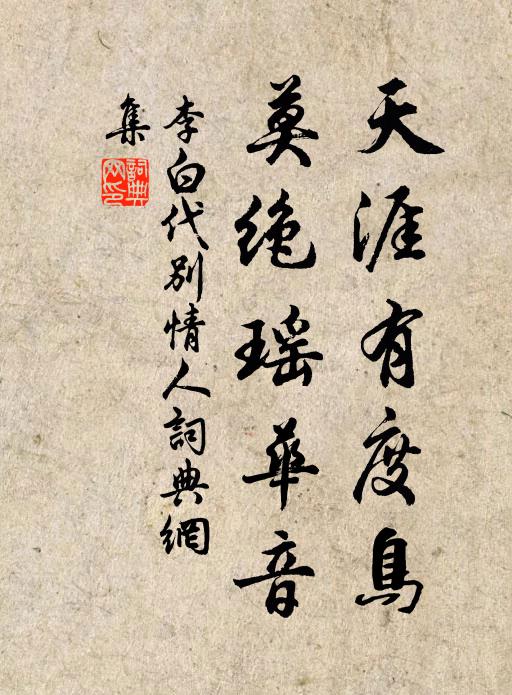 天涯有度鳥
莫絶瑶華音
李白代別情人詞典網
集
詞典網印